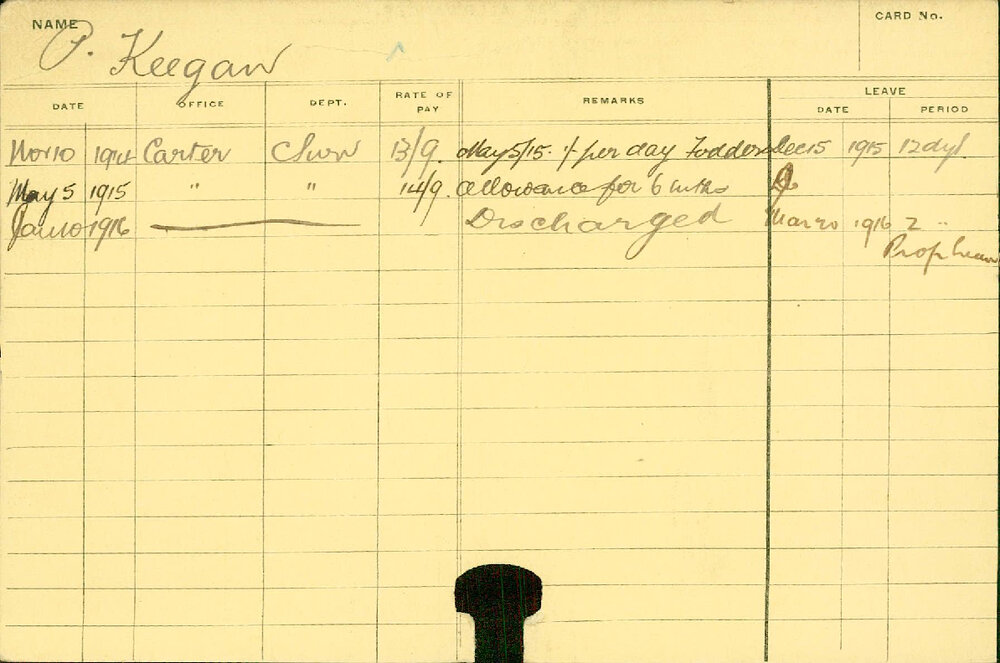 NAME P. Keegan CARD No.
DATE OFFICE DEPT. RATE OF PAY REMARKS LEAVE
DATE PERIOD
Nov 10 1914 Carter 13/9. May 5/15. 1/- per day Fodder Dec 15 1915 12 dys
May 5 1915 " " 14/9. allowance for 6 mths
Jan 10 1916 Discharged Mar 20 1916 2 "
Prop leave